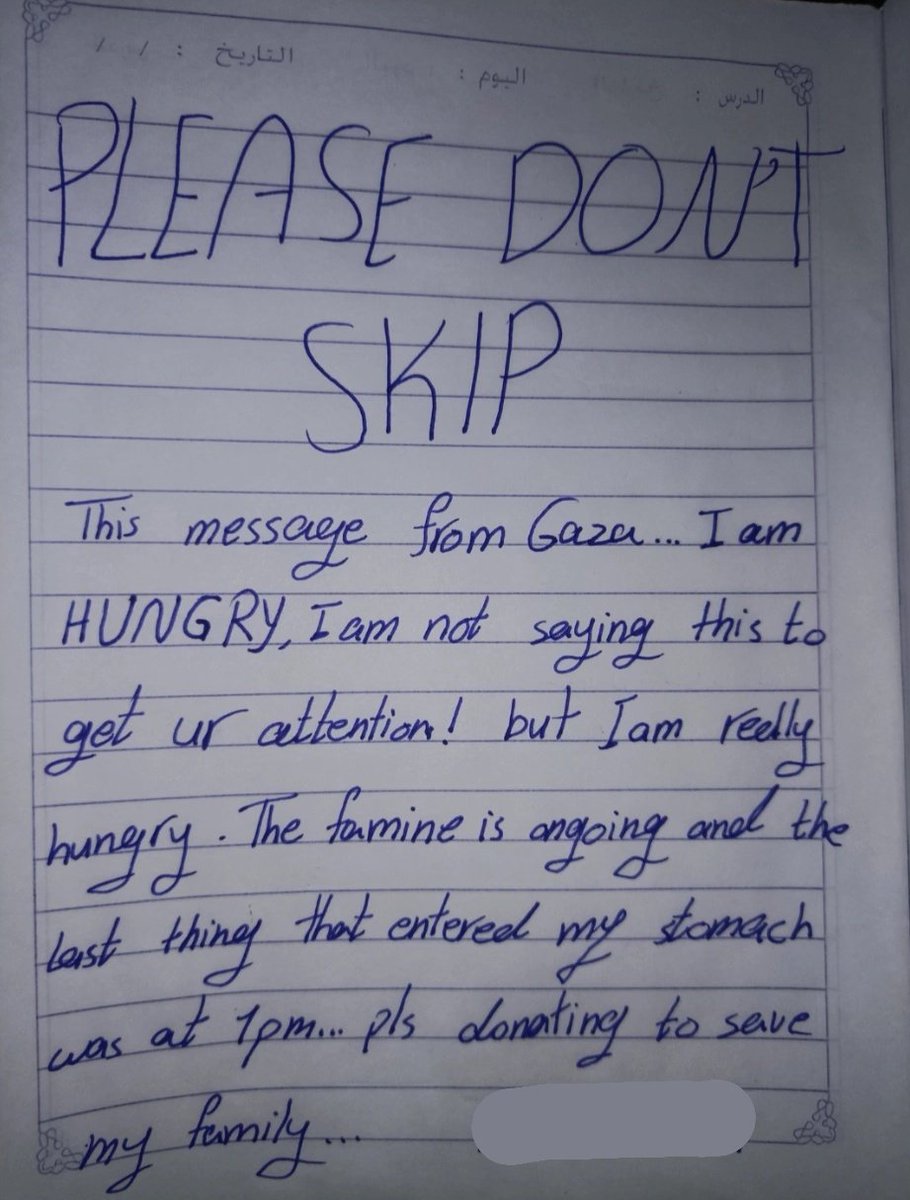 الدرس : اليوم : التاريخ : / /
PLEASE DON'T
SKIP
This message from Gaza... I am
HUNGRY, I am not saying this to
get ur attention! but I am really
hungry. The famine is ongoing and the
last thing that entered my stomach
was at 1pm... pls donating to save
my family...